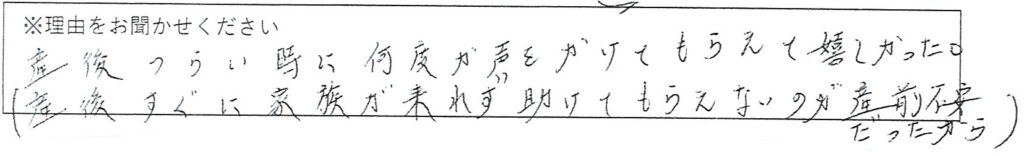 ※理由をお聞かせください
産後つらい時に何度か声をかけてもらえて嬉しかった。
(産後すぐに家族が来れず助けてもらえないのが産前不安
だったから)